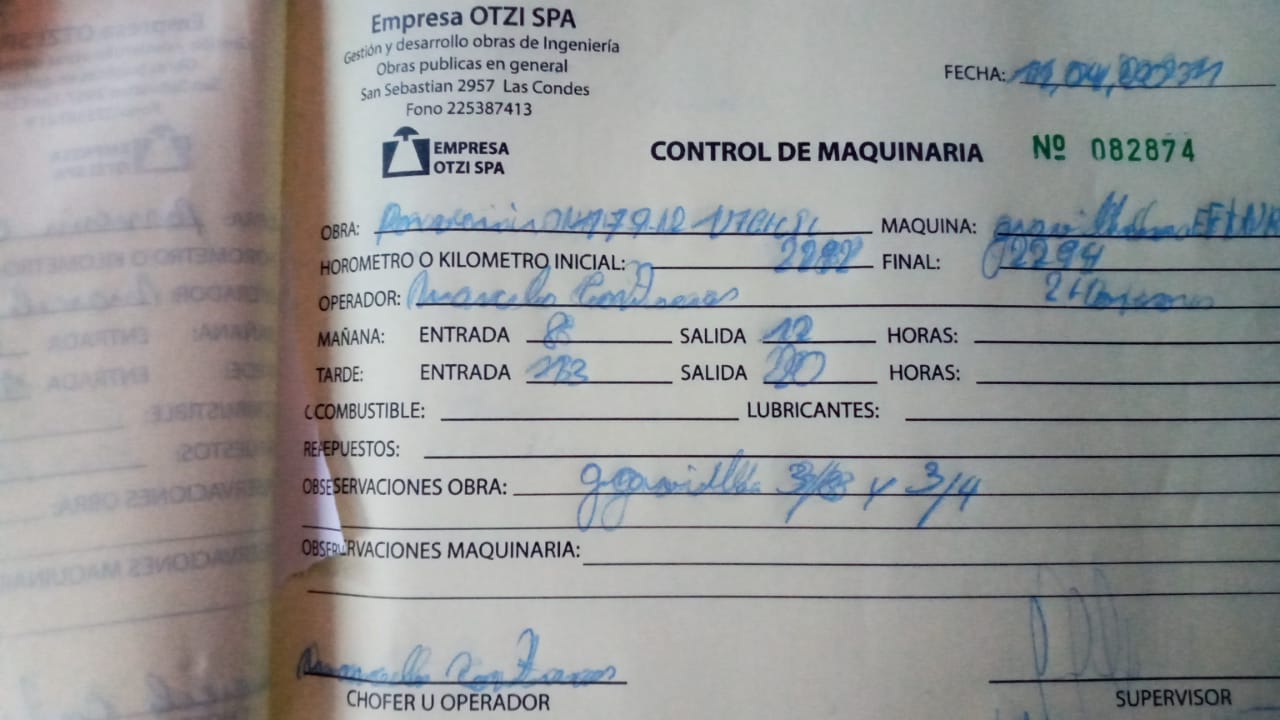 Empresa OTZI SPA
Gestión y desarrollo obras de Ingeniería
Obras publicas en general
San Sebastian 2957 Las Condes
Fono 225387413
FECHA:
EMPRESA
OTZI SPA
CONTROL DE MAQUINARIA Nº 082874
OBRA: MAQUINA:
HOROMETRO O KILOMETRO INICIAL: 2282 FINAL: 2294
OPERADOR: Marcelo Contreras
MAÑANA: ENTRADA 8 SALIDA 12 HORAS:
TARDE: ENTRADA 13 SALIDA 20 HORAS:
COMBUSTIBLE: LUBRICANTES:
REPUESTOS:
OBSERVACIONES OBRA: gravilla 3/8 y 3/4
OBSERVACIONES MAQUINARIA:
Marcelo Contreras
CHOFER U OPERADOR SUPERVISOR